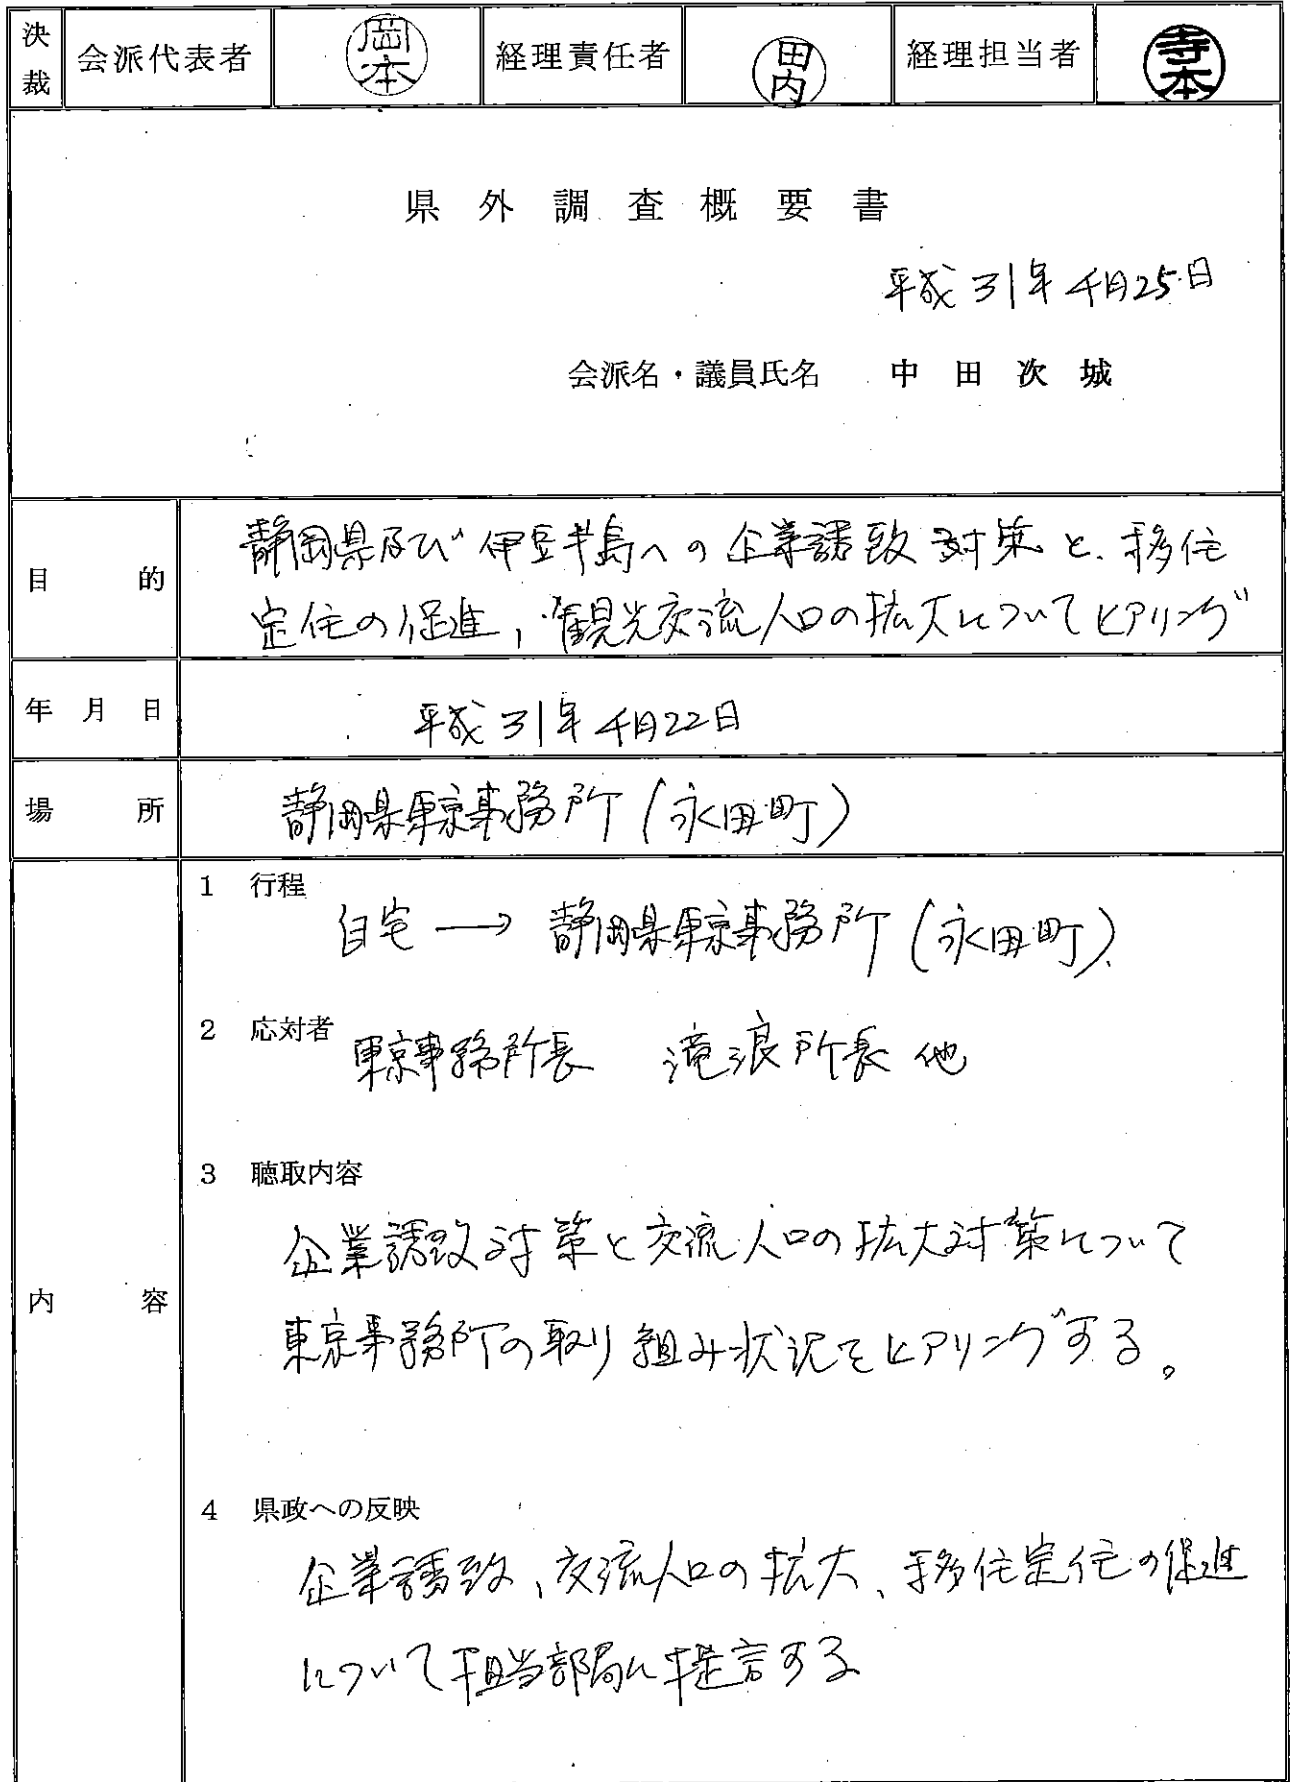 決裁 会派代表者 岡本 経理責任者 田内 経理担当者 寺本
県外調査概要書
平成31年4月25日
会派名・議員氏名 中田次城
目的 静岡県及び伊豆半島への企業誘致対策と、移住
定住の促進,観光交流人口の拡大についてヒアリング
年月日 平成31年4月22日
場所 静岡県東京事務所(永田町)
内容
1 行程
自宅→静岡県東京事務所(永田町)
2 応対者
東京事務所長 滝浪所長 他
3 聴取内容
企業誘致対策と交流人口の拡大対策について
東京事務所の取り組み状況をヒアリングする。
4 県政への反映
企業誘致、交流人口の拡大、移住定住の促進
について担当部局に提言する